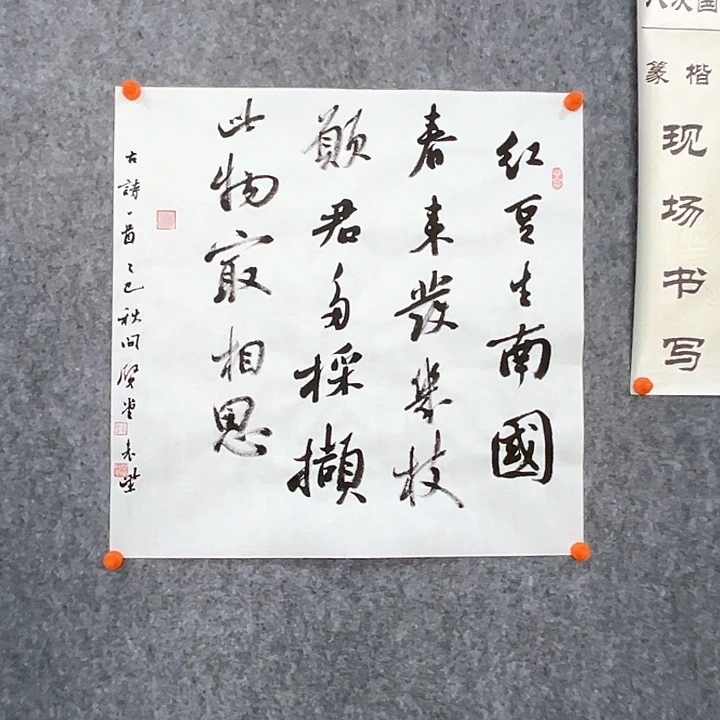 红豆生南國
春来發幾枝
願君多採擷
此物最相思
古詩一首 乙巳秋问賢堂
篆 楷
现场书写